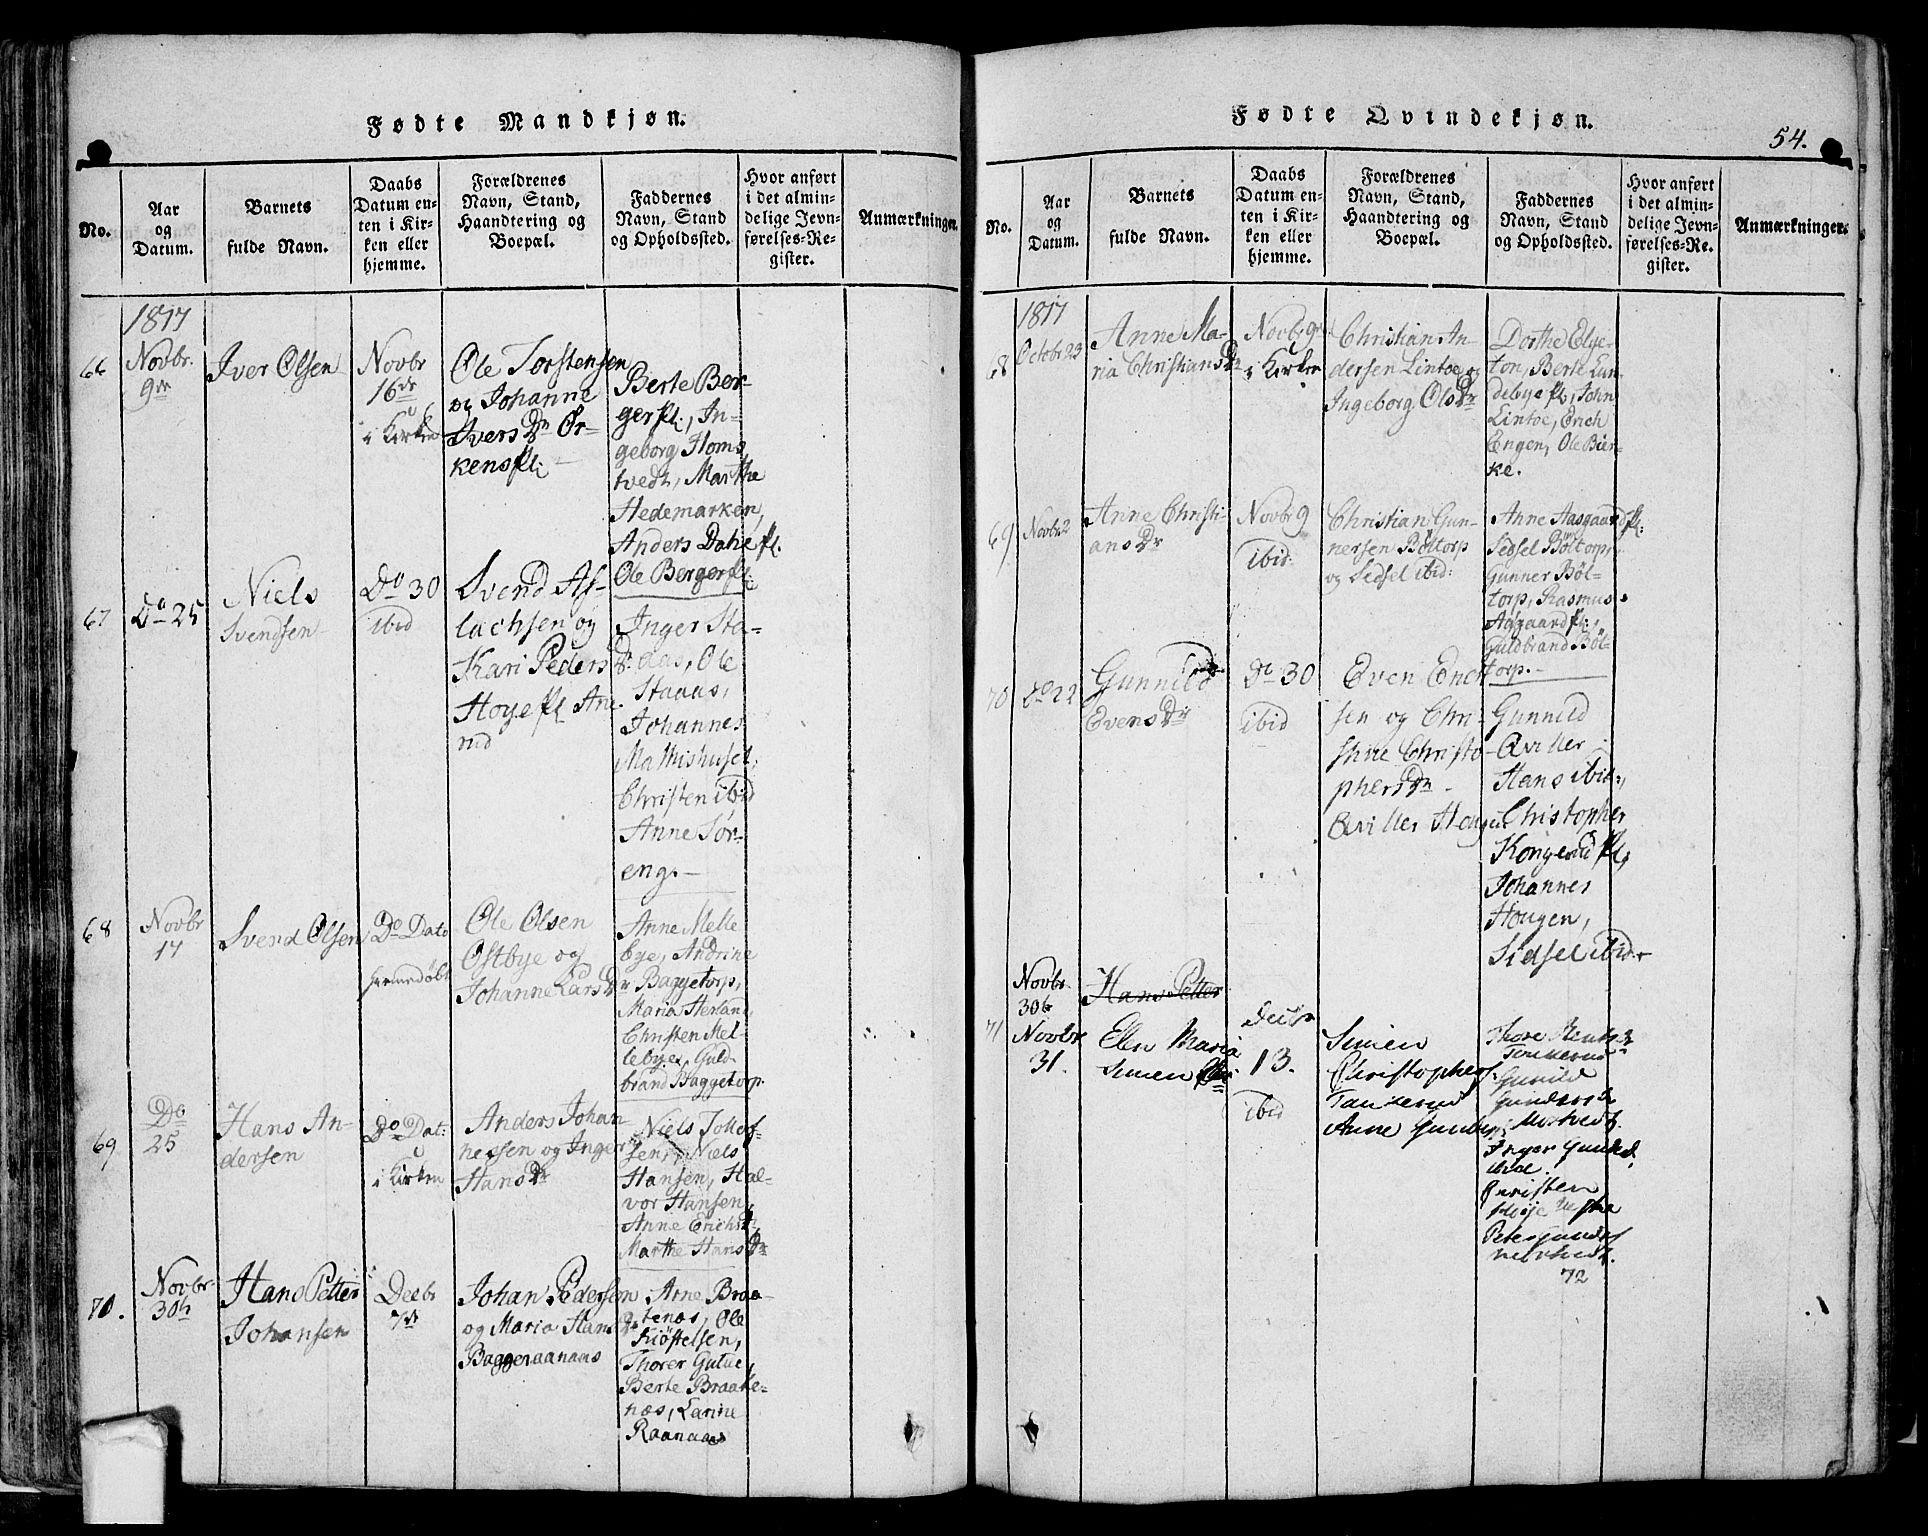 Fødte Mandkjøn.
No.
Aar
og
Datum.
Barnets
fulde Navn.
Daabs
Datum en-
ten i Kir-
ken eller
hjemme.
Forældrenes
Navn, Stand,
Haandtering og
Boepæl.
Faddernes
Navn, Stand
og Opholdssted.
Hvor anført
i det almin-
delige Jevn-
førelses-Re-
gister.
Anmærkninger.
1817
66
Novbr.
9de
Iver Olsen
Novbr
16de
i Kirken
Ole Torstensen
og Johanne
Ivers Dr Ør-
kenspl:
Berte Ber-
gerpl:, In-
geborg Homs
tvedt, Marthe
Hedemarken,
Anders Dahepl.
Ole Bergerpl:
67
Do 25
Niels
Svendsen
Do 30
ibid
Svend As-
lachsen og
Kari Peders Dr
Hoyepl
Inger Sta-
aas, Ole
Staaas,
Johannes
Mathishuset,
Christen ibid
Anne Sør-
eng.
68
Novbr
17
Svend Olsen
Do Dato
hiemedøbt
Ole Olsen
Ostbye og
Johanne Lars Dr
Anne Melle
bye, Andrine
Baggetorp,
Maria Herland
Christen Mel-
lebye, Guld-
brand Baggetorp.
69
Do
25
Hans An-
dersen
Do Dat:
i Kirken
Anders Johan
nessen og Inger
Hans Dr
Niels Tollef-
sen, Niels
Hansen, Hal-
vor Hansen,
Anne Erichs Dr,
Marthe Hans Dr
70.
Novbr
30te
Hans Petter
Johansen
Decbr
7de
Johan Pedersen
og Maria Hans Dr
Baggeraanaas
Arne Braa-
tenæs, Ole
Kiøstelsen,
Thorer Gutue,
Berte Braate-
næs, Karine
Raanaas
Fødte Qvindekjøn.
54.
No.
Aar
og
Datum.
Barnets
fulde Navn.
Daabs
Datum en-
ten i Kir-
ken eller
hjemme.
Forældrenes
Navn, Stand,
Haandtering og
Boepæl.
Faddernes
Navn, Stand
og Opholdssted.
Hvor anført
i det almin-
delige Jevn-
førelses-Re-
gister.
Anmærkninger.
1817
68
October 23
Anne Ma-
ria Christians Dr
Novbr 9de
i Kirken
Christian An-
dersen Lintoe og
Ingeborg Ols Dr
Dorthe Elge-
ton, Berte Lun-
debyepl, John
Lintoe, Erich
Engen, Ole Bier-
ke.
69
Novbr 2
Anne Christi-
ans Dr
Novbr 9
ibid:
Christian Gun-
nersen Böltorp
og Sidsel ibid:
Anne Aasgaardpl:
Sidsel Böltorp,
Gunner Böl-
torp, Rasmus
Aasgaardpl:,
Guldbrand Böl-
torp.
70
Do 22
Gunnild
Evens Dr
Do 30
ibid
Even Erich
sen og Chri-
stine Christo-
phers Dr
Qviller Hougen
Gunnild
Qviller
Hans ibid:,
Christopher
Kongerudpl;
Johannes
Hougen,
Sidsel ibid
Novbr
30te
Hans Petter
71
Novbr
31.
Ellen Maria
Simen Dr
Decbr
13.
ibid
Simen
Christophers.
Tankerud
Anne Gunders
Thore
Tankerud
Gunild
Gunders Dr
Mostvedt.
Inger Gunds.
ibid.
Christen
72